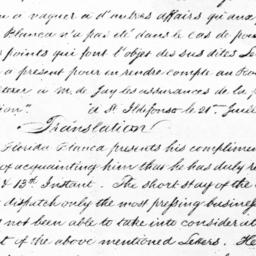 en a vaquer a d'autres affairs qui aux p
Blanca n'a pas eté dans le cas de pou
points qui font l'objet des sus dites Le
a present pour en rendre compte au Ro
a M. de Jay les assurances de la p
tion". à St Ildefonso le 21e Juil
Translation
Florida Blanca presents his complimen
of acquainting him that he has duly re
& 13th Instant. The short stay of the
dispatch only the most pressing busines
not been able to take into considerat
t of the above mentioned Letters. He